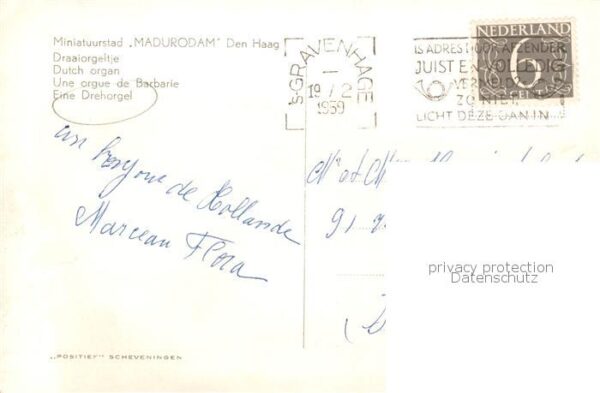 Miniatuurstad „MADURODAM" Den Haag
Draaiorgeltje
Dutch organ
Une orgue de Barbarie
Eine Drehorgel
's-GRAVENHAGE
1959
NEDERLAND
6
CENT
IS ADRES DOOR AFZENDER
JUIST EN VOLLEDIG
ZO NIET,
LICHT DEZE DAN IN
un bonjour de Hollande
Marceau Flora
Mr et M
91
privacy protection
Datenschutz
„POSITIEF" SCHEVENINGEN